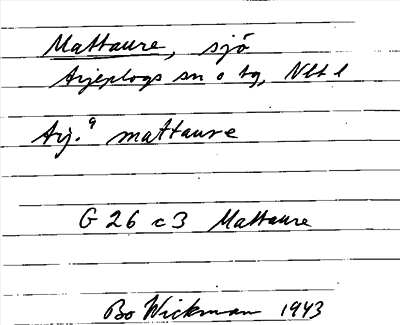 Mattaure, sjö
Arjeplogs sn o tg, Nbt l
Arj. a mattaure
G 26 c 3 Mattaure
Bo Wickman 1943